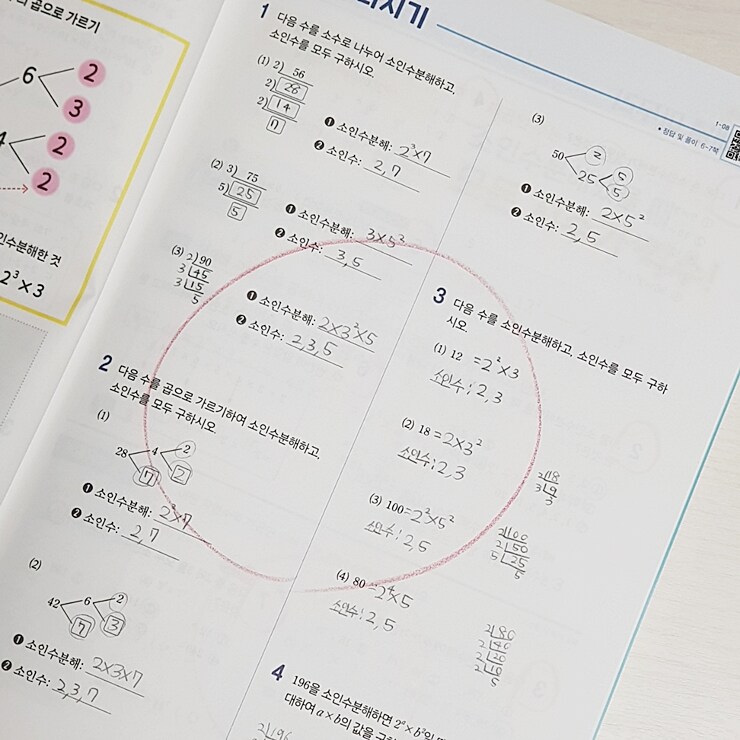 곱으로 가르기
6
2
3
2
2
인수분해한 것
2³×3
1 다음 수를 소수로 나누어 소인수분해하고,
소인수를 모두 구하시오.
(1) 2) 56
2) 28
2) 14
7
❶ 소인수분해: 2³×7
❷ 소인수: 2, 7
(2) 3) 75
5) 25
5
❶ 소인수분해: 3×5²
❷ 소인수: 3, 5
(3) 2) 90
3) 45
3) 15
5
❶ 소인수분해: 2×3²×5
❷ 소인수: 2, 3, 5
2 다음 수를 곱으로 가르기하여 소인수분해하고,
소인수를 모두 구하시오.
(1)
28 4 2
7 2
❶ 소인수분해: 2×7
❷ 소인수: 2, 7
(2)
42 6 2
7 3
❶ 소인수분해: 2×3×7
❷ 소인수: 2, 3, 7
1-08
• 정답 및 풀이 6-7쪽
(3)
50 2 5
25 5
❶ 소인수분해: 2×5²
❷ 소인수: 2, 5
3 다음 수를 소인수분해하고, 소인수를 모두 구하
시오.
(1) 12 =2²×3
소인수: 2, 3
(2) 18 =2×3²
소인수: 2, 3
2) 18
3) 9
3
(3) 100 =2²×5²
소인수: 2, 5
2) 100
2) 50
5) 25
5
(4) 80 =2⁴×5
소인수: 2, 5
2) 80
2) 40
2) 20
2) 10
5
4 196을 소인수분해하면 2ᵃ×b²일 때
대하여 a×b의 값을 구하
2) 196